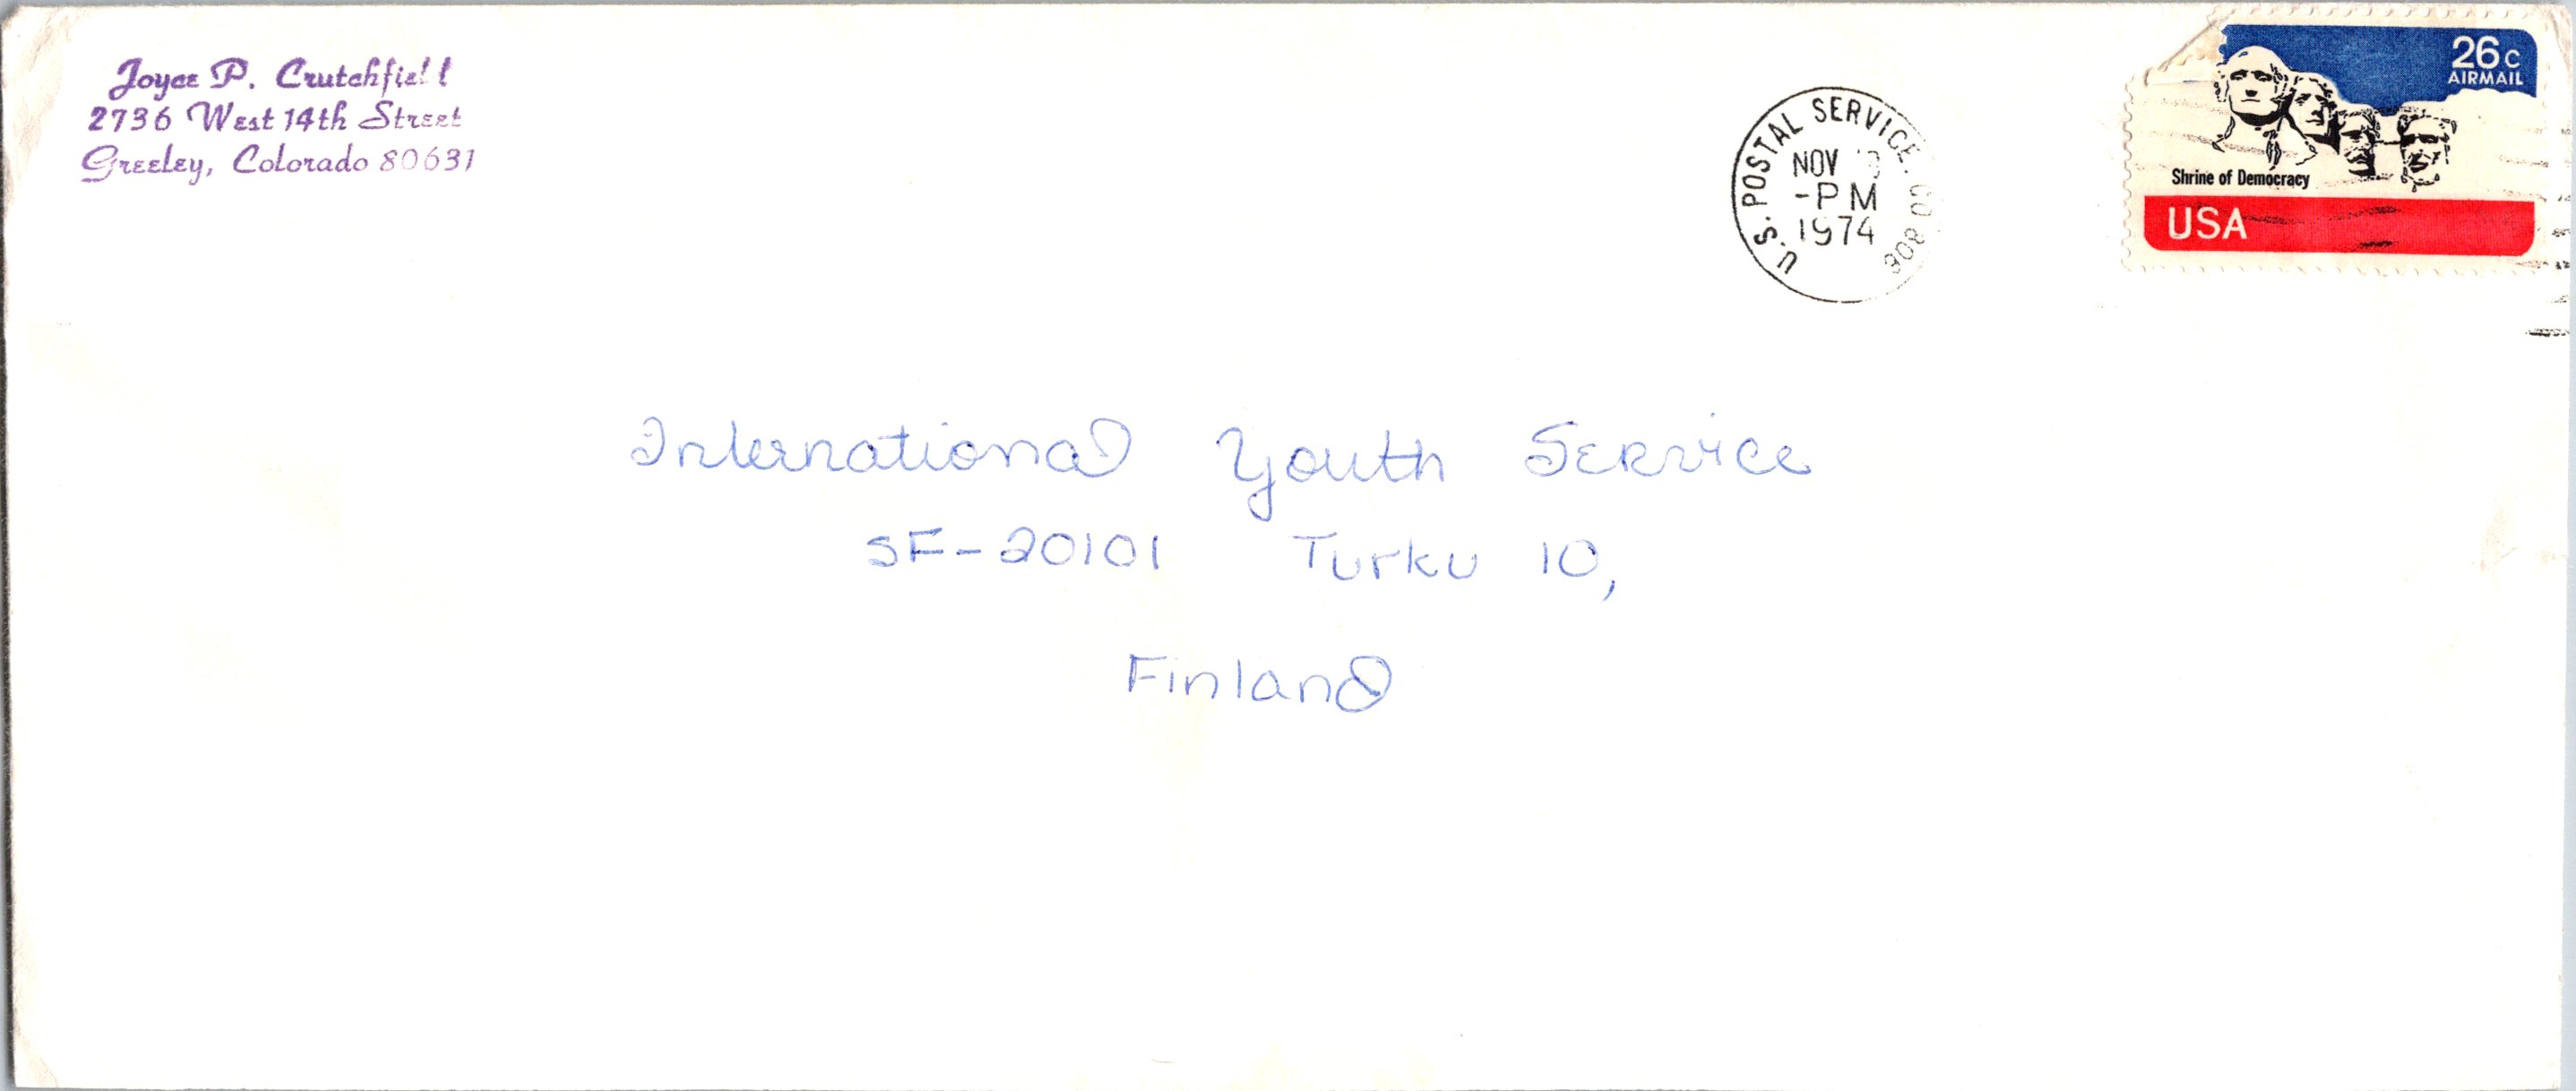 Joyce P. Crutchfield
2736 West 14th Street
Greeley, Colorado 80631
U.S. POSTAL SERVICE. CO 806
NOV
-PM
1974
26c
AIRMAIL
Shrine of Democracy
USA
International Youth Service
SF-20101 Turku 10,
Finland